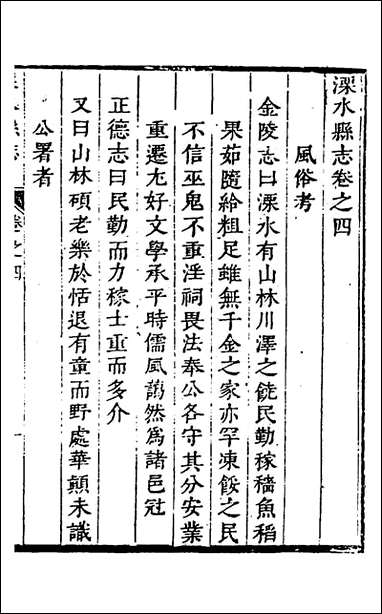 溧水縣志卷之四
風俗考
金陵志曰溧水有山林川澤之饒民勤稼穡魚稻
果茹隨給粗足雖無千金之家亦罕凍餒之民
不信巫鬼不重淫祠畏法奉公各守其分安業
重遷尤好文學承平時儒風藹然為諸邑冠
正德志曰民勤而力稼士重而多介
又曰山林碩老樂於恬退有童而野處華顛未識
公署者
卷之四